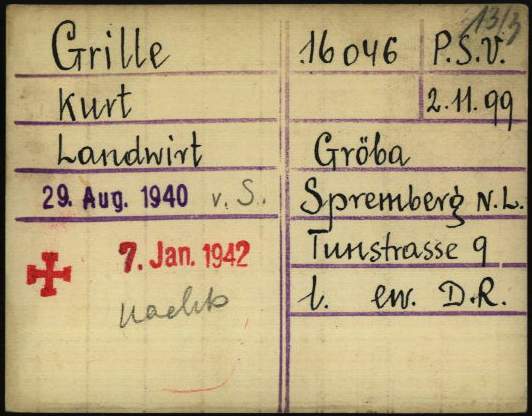 Grille
Kurt
Landwirt
29. Aug. 1940 v. S.
7. Jan. 1942
nachts
13/3
16046 P.S.V.
2.11.99
Gröba
Spremberg N.L.
Tunstrasse 9
l. ew. D.R.